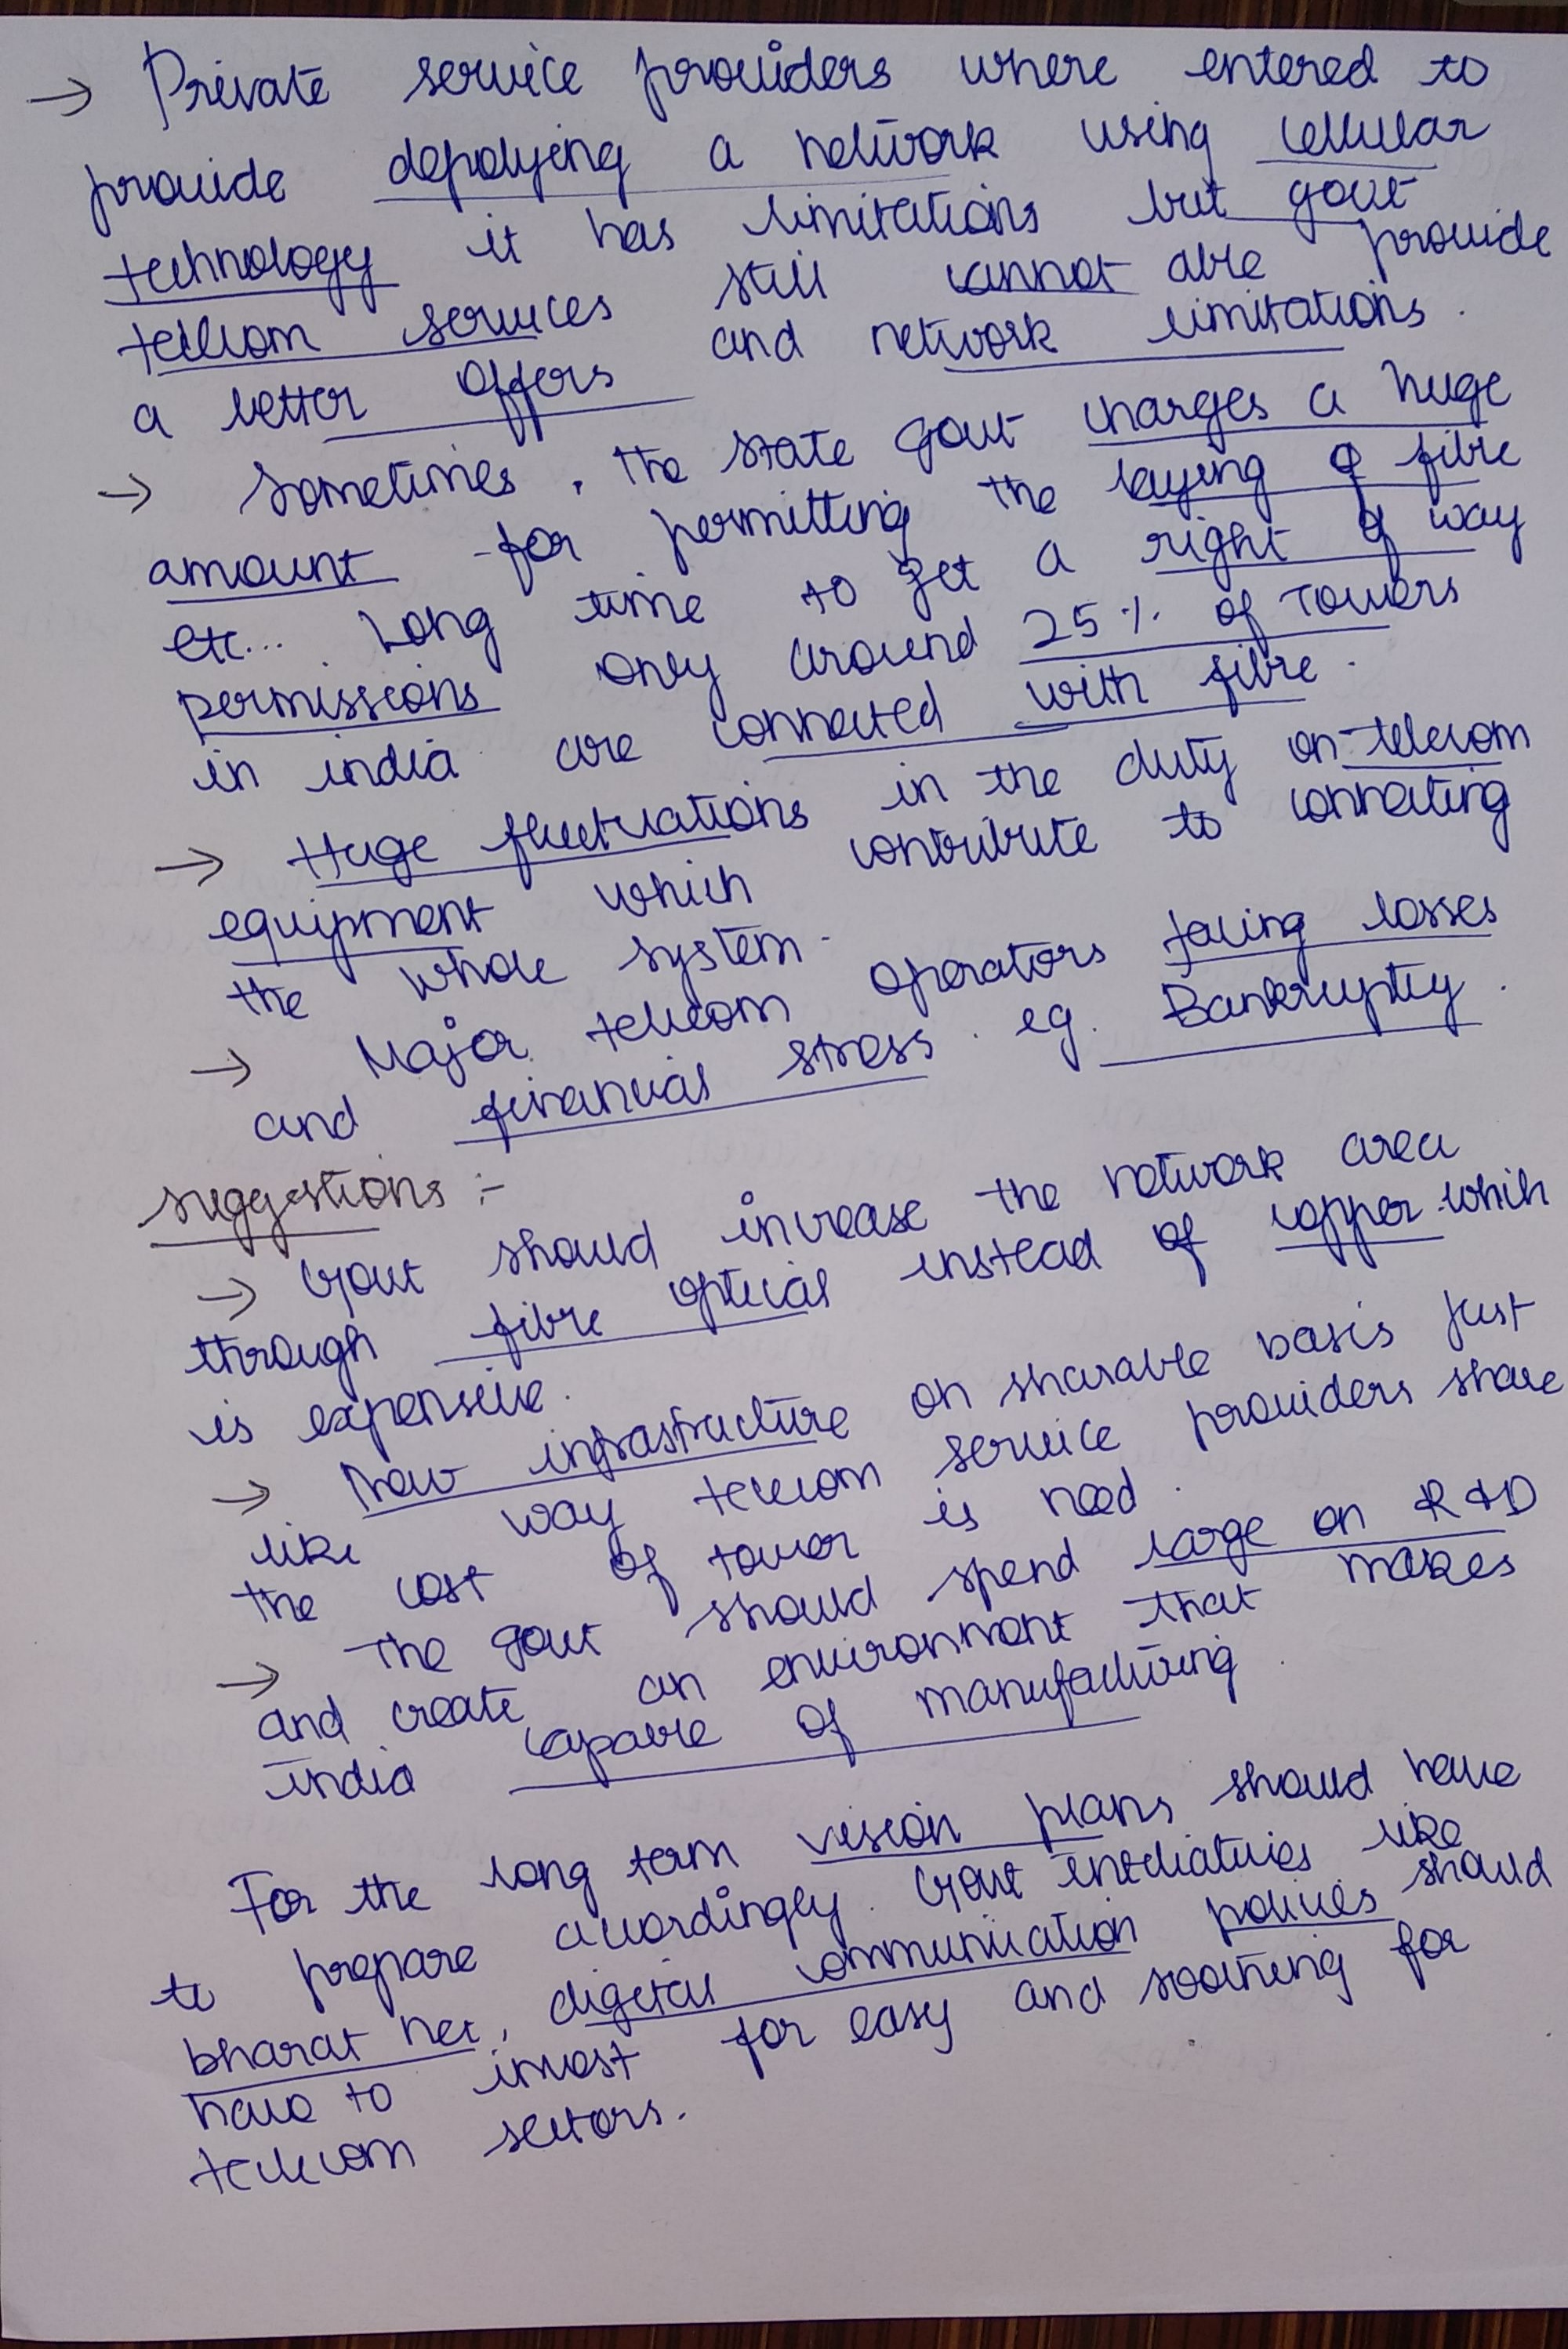 → Private service providers where entered to
provide depolying a network using cellular
technology it has limitations but govt
telecom services still cannot able provide
a better offers and network limitations.
→ Sometimes, the state govt charges a huge
amount for permitting the laying of fibre
etc... Long time to get a right of way
permissions only around 25% of Towers
in india are connected with fibre.
→ Huge fluctuations in the duty on telecom
equipment which contribute to connecting
the whole system.
→ Major telecom operators facing losses
and financial stress. eg. Bankruptcy.
suggestions :-
→ Govt should increase the network area
through fibre optical instead of copper which
is expensive.
→ New infrastructure on sharable basis just
like way telecom service providers share
the cost of tower is need.
→ The govt should spend large on R&D
and create an environment that makes
india capable of manufacturing.
For the long term vision plans should have
to prepare accordingly. Govt like
bharat net, digital communication policies should
have to invest for easy and for
telecom sectors.